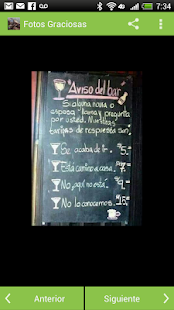 7:34
Fotos Graciosas
"Aviso del bar"
Si alguna novia o
esposa llama y pregunta
por usted. Nuestras
tarifas de respuesta son"
Se acaba de ir $5.-
Está camino a casa $7.-
No, aquí no está $9.-
No lo conocemos $15.-
Anterior
Siguiente